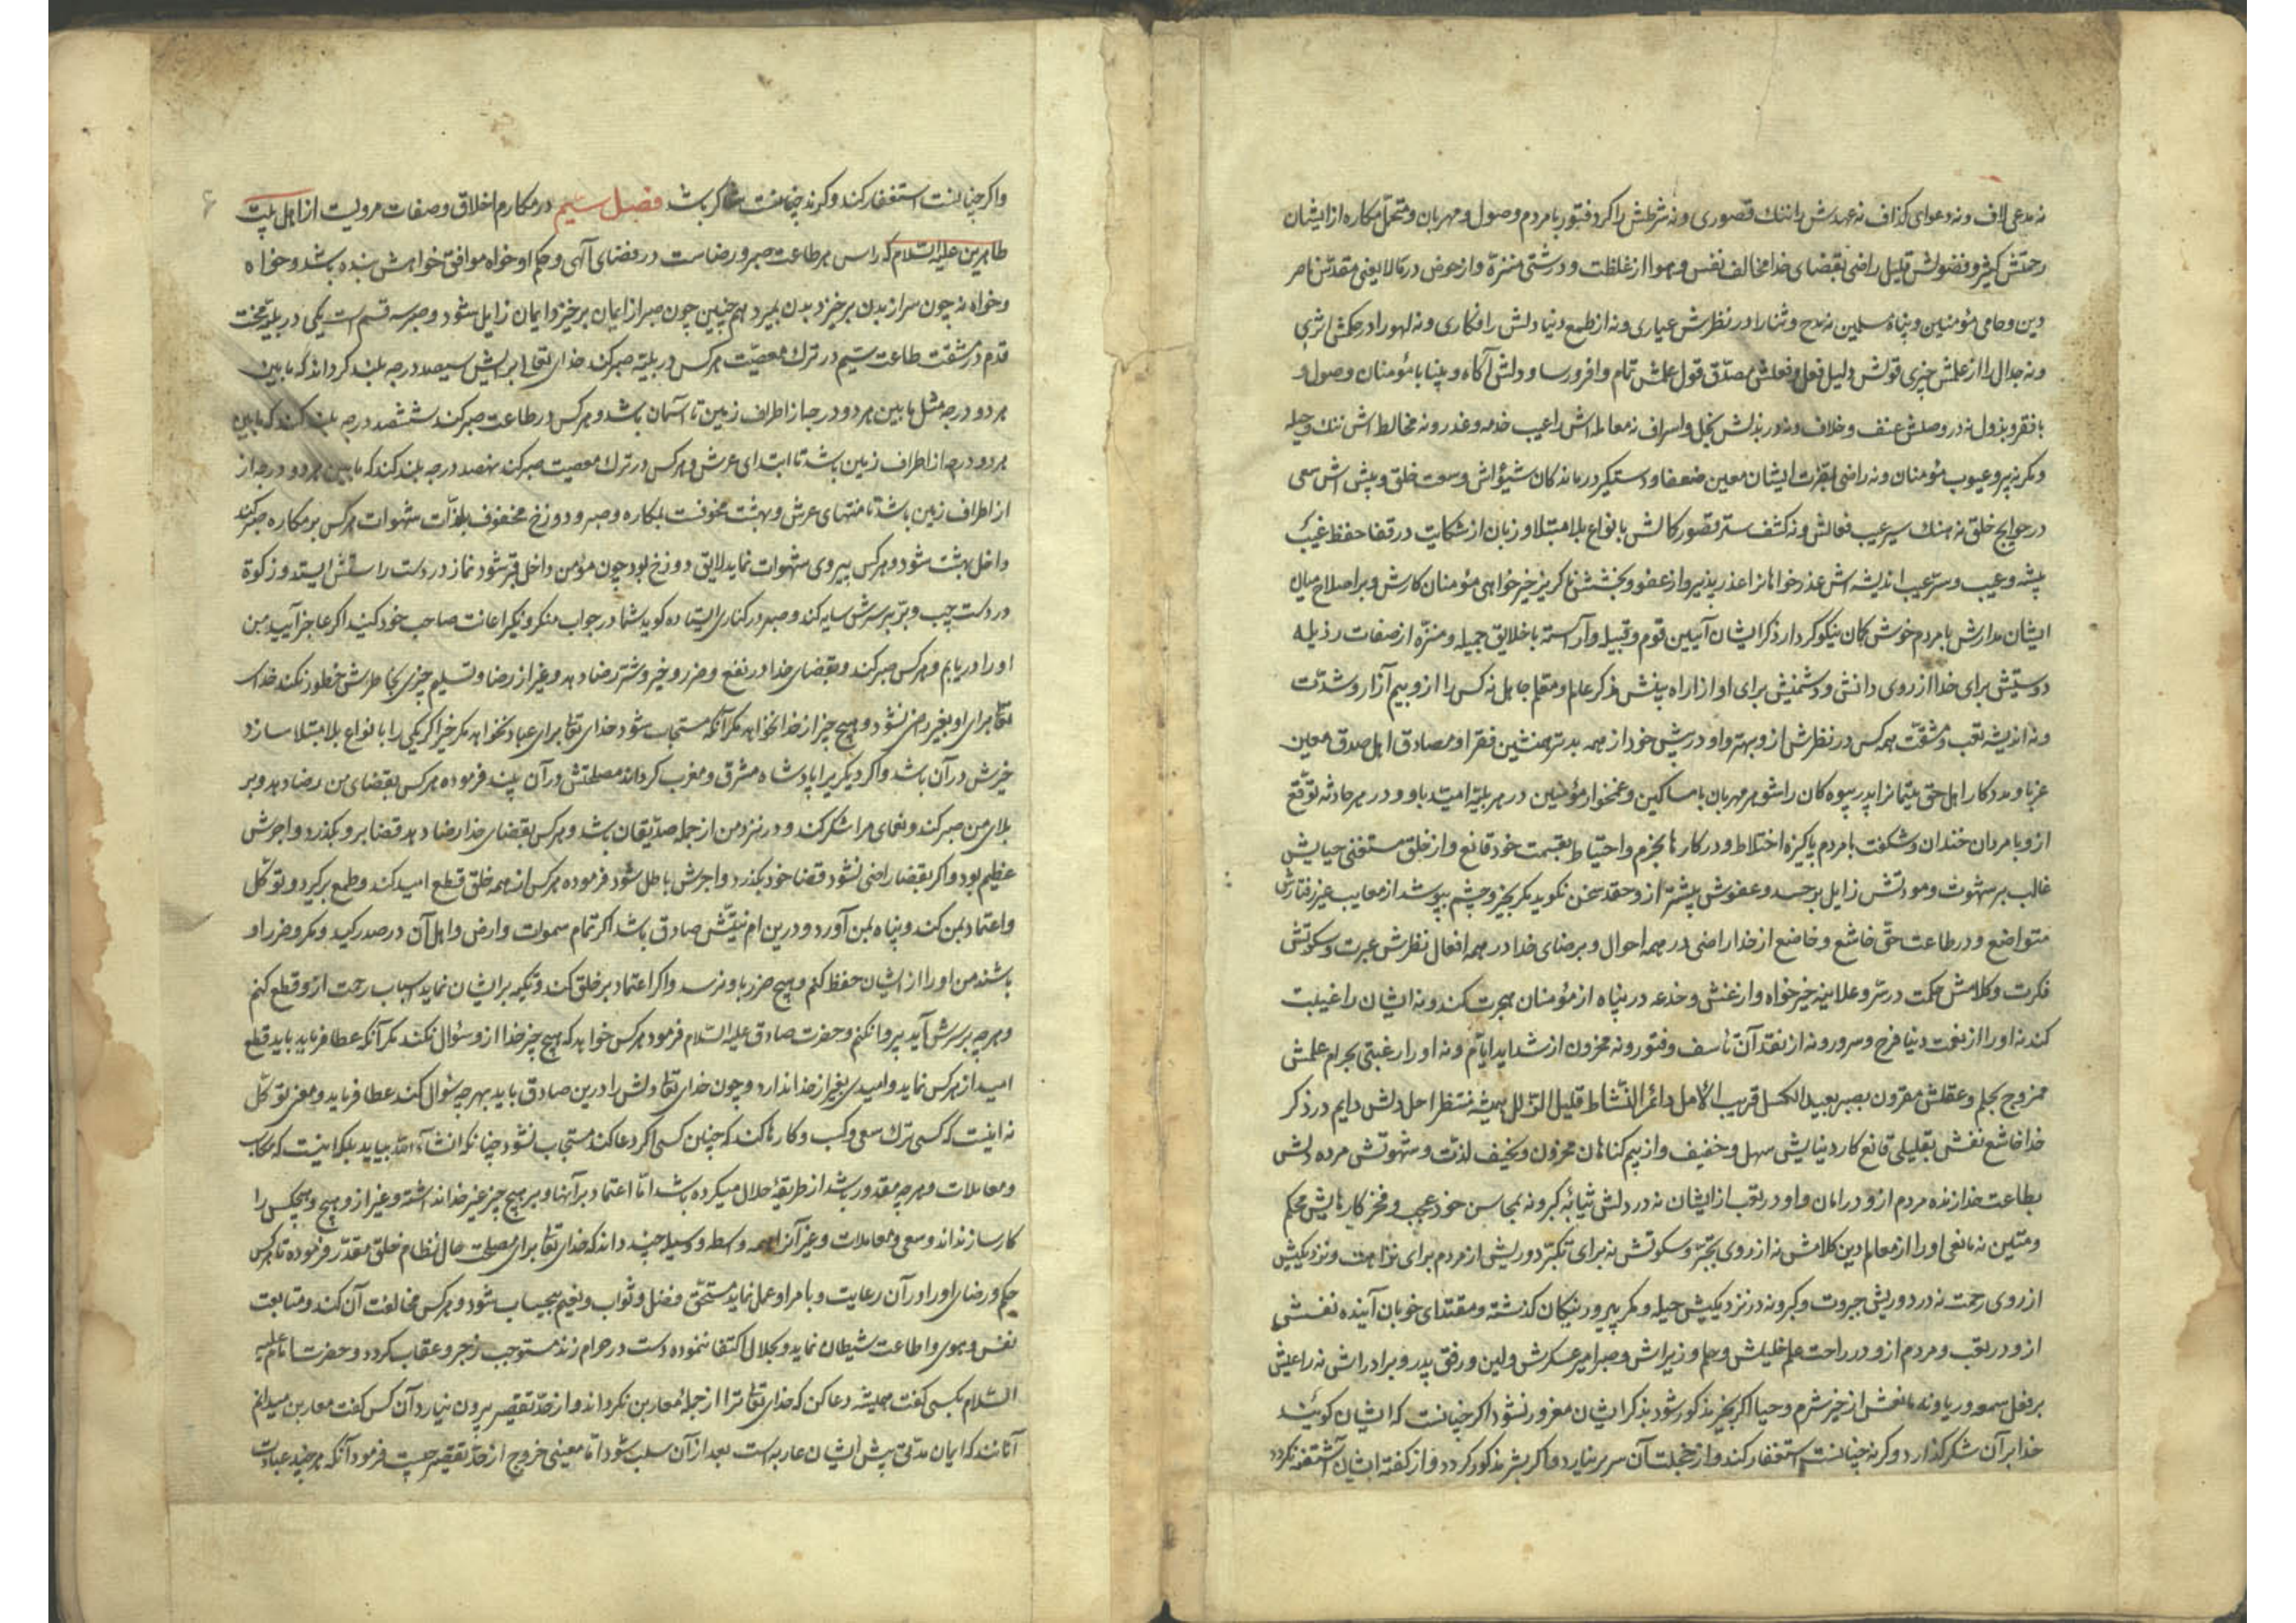 نه مدعی لاف ونه دعوای کذاف نه عهدش را ننك قصوری ونه شرطش را کرد فتور با مردم وصول ومهربان ومتحمل مکاره از ایشان
رحمتش کثیر و فضولش قلیل راضی بقضای خدا مخالف نفس وهوا از غلظت و درشتی منزه واز خوض در مالا یعنی مقدس ناصر
دین وحامی مؤمنین و پناه مسلمین نه مدح وثنا را در نظرش عیاری ونه از طمع دنیا دلش را فکاری ونه لهو را در حکمش اثری
ونه جدال را از علمش خبری قولش دلیل فعل وفعلش مصدق قول علمش تمام وافر ورسا ودلش آگاه وبینا با مؤمنان وصول و
با فقر وبذول نه در وصلش عنف وخلاف ونه در بذلش بخل واسراف نه معامله اش را عیب خدعه وغدر ونه مخالط اش ننك وحیله
ومکر نه پیرو عیوب مؤمنان ونه راضی لغزت ایشان معین ضعفا ودستکیر درماندکان شیؤاش وسعت خلق وپیش اش سعی
در حوایج خلق نه هتك سیر عیب فعالش ونه کشف ستر قصور کالش بانواع بلا مبتلا وزبان از شکایت در قفا حفظ غیب
پیشه وعیب وستر عیب اندیشه اش عذر خواهان را عذر پذیر واز عفو وبخشش ناکریز خیرخواهی مؤمنان کارش وبر اصلاح میان
ایشان مدارش با مردم خوش کمان نیکو کردار ذکر ایشان آیین قوم وقبیل وآراسته با خلایق جمیله ومنزه از صفات رذیله
دوستیش برای خدا از روی دانش ودشمنیش برای او از راه بینش مذکر عالم ومعلم جاهل نه کس را از وبیم آزار وشدت
ونه اندیشه تعب ومشقت همه کس در نظرش از وبهتر واو در پیش خود از همه بدتر همنشین فقرا ومصادق اهل صدق معین
غربا ومددکار اهل حق یتیمانرا پدر بیوه کان را شوهر مهربان با مساکین وغمخوار مؤمنین در هر بلیه امید باو ودر هر حادثه توقع
ازو با مردان خندان وشکفت با مردم پاکیزه اختلاط ودر کارها بجزم واحتیاط بقسمت خود قانع واز خلق مستغنی حیایش
غالب بر شهوت ومودتش زایل بر حسد وعفوش بیشتر از وحقد سخن نکوید مکر بخیر وچشم بپوشد از معایب غیر رفتارش
متواضع ودر طاعت حق خاشع وخاضع از خدا راضی در همه احوال وبرضای خدا در همه افعال نظرش عبرت وسکوتش
فکرت وکلامش حکمت در سر وعلانیه خیرخواه واز غش وخدعه در پناه از مؤمنان هجرت کند ونه ایشان را غیبت
کند نه او را از نعت دنیا فرح وسرور ونه از نقد آن تأسف وفتور ونه محزون از شداید ایام ونه او را رغبتی بحرام علمش
ممزوج بحلم وعقلش مقرون بصبر بعید الکسل قریب الأمل دائم النشاط قلیل الزلل همیشه منتظر اجل دلش دایم در ذکر
خدا خاشع نفس بقلیلی قانع کار دنیایش سهل وخفیف واز بیم کناهان محزون ونحیف لذت وشهوتش مرده دلش
بطاعت خدا زنده مردم ازو در امان واو در تعب از ایشان نه در دلش شائبه کبر ونه بمحاسن خود عجب وفخر کارهایش محکم
ومتین نه مانعی او را از معالم دین کلامش نه از روی تجبر وسکوتش نه برای تکبر دوریش از مردم برای نزاهت ونزدیکیش
از روی رحمت نه در دوریش جبروت وکبر ونه در نزدیکیش حیله ومکر پیرو نیکان کذشته ومقتدای خوبان آینده نفسش
ازو در تعب ومردم ازو در راحت علم خلیلش وحلم وزیراش وصبر امیر عسکرش ولین ورفق پدر وبرادرانش نه راعیش
بر فعل سمعه وریا ونه مانعش از خیر شرم وحیا اکر بخیر مذکور شود بذکر ایشان مغرور نشود اکر چنانست که ایشان کویند
خدا بر آن شکر کذارد وکر نه چنانست استغفار کند واز خجلت آن سر بر نیارد واکر بشر مذکور کردد واز کفته ایشان آشفته نکردد
واکر چنانست استغفار کند وکر نه چنانست شاکر باشد فصل سیم در مکارم اخلاق وصفات مرویست از اهل بیت
طاهرین علیهم السلام که راس هر طاعت صبر ورضاست در قضای آلهی وحکم او خواه موافق خواهش بنده باشد وخواه
وخواه نه چون سر از بدن برخیزد بدن بمیرد همچنین چون صبر از ایمان برخیزد ایمان زایل شود وصبر سه قسم است یکی در بلیه ومحنت
قدم در مشقت طاعت سیم در ترك معصیت هرکس در بلیه صبر کند خدای تعالی برایش سیصد درجه بلند کرداند که مابین
هر دو درجه مثل مابین هر دو درجه از اطراف زمین تا آسمان باشد وهرکس در طاعت صبر کند ششصد درجه بلند کند که مابین
هر دو درجه از اطراف زمین باشد تا ابتدای عرش وهرکس در ترك معصیت صبر کند نهصد درجه بلند کند که مابین هر دو درجه از
از اطراف زمین باشد تا منتهای عرش وبهشت محفوفست بمکاره وصبر ودوزخ محفوف بلذات شهوات هرکس بر مکاره صبر کند
داخل بهشت شود وهرکس پیروی شهوات نماید لایق دوزخ بود چون مؤمن داخل قبر شود نماز در دست راستش ایستد وزکوة
در دست چپ وبر بر سرش سایه کند وصبر در کناری ایستاده کوید شما در جواب منکر ونکیر اعانت صاحب خود کنید اکر عاجز آیید من
او را دریابم وهرکس صبر کند وبقضای خدا در نفع وضرر وخیر وشر رضا دهد وغیر از رضا وتسلیم چیزی بخاطرش خطور نکند خدای
تعالی برای او بغیر راضی نشود وهیچ چیز از خدا نخواهد مکر آنکه مستجاب شود خدای تعالی برای عباد نخواهد مکر خیر اکر یکی را بانواع بلا مبتلا سازد
خیرش در آن باشد واکر دیکریرا پادشاه مشرق ومغرب کرداند مصلحتش در آن بیند فرموده هرکس بقضای من رضا دهد وبر
بلای من صبر کند ونعمای مرا شکر کند ودر نزد من از جمله صدیقان باشد وهرکس بقضای خدا رضا دهد قضا برو بکذرد واجرش
عظیم بود واکر بقضا راضی نشود قضا خود بکذرد واجرش باطل شود فرموده هرکس از همه خلق قطع امید کند وطمع برکیرد وتوکل
واعتماد بمن کند وپناه بمن آورد ودرین امر نیتش صادق باشد اکر تمام سموات وارض واهل آن در صدد کید ومکر وضرر او
باشند من او را از ایشان حفظ کنم وهیچ ضرر باو نرسد واکر اعتماد بر خلق کند وتکیه بر ایشان نماید اسباب رحمت ازو قطع کنم
وهرچه بر سرش آید پروا نکنم وحضرت صادق علیه السلام فرمود هرکس خواهد که هیچ چیز خدا ازو سئوال نکند مکر آنکه عطا فرماید باید قطع
امید از هرکس نماید وامیدی بغیر از خدا ندارد وچون خدای تعالی دلش را درین صادق یابد هر چه سئوال کند عطا فرماید ومعنی توکل
نه اینست که کسی ترك سعی وکسب وکارها کند که چنان کسی اکر دعا کند مستجاب نشود چنانکه انشاء الله بیاید بلکه اینست که مکاسب
ومعاملات وهرچه مقدور باشد از طریقه حلال میکرده باشد اما اعتماد بر آنها وبر هیچ چیز غیر خدا نداشته وغیر ازو هیچ وهیچکس را
کارساز نداند وسعی ومعاملات وغیر آنرا همه واسطه ووسیله چند داند که خدای تعالی برای مصلحت حال نظام خلق مقدر فرموده تا هرکس
حکم ورضای او را در آن رعایت وبامر او عمل نماید مستحق فضل وثواب ونعیم بیحساب شود وهرکس مخالفت آن کند ومتابعت
نفس وهوی واطاعت شیطان نماید وبحلال اکتفا ننموده دست در حرام زند مستوجب زجر وعقاب کردد وحضرت امام علیه
السلام بکسی کفت همیشه دعا کن که خدای تعالی ترا از جمله معارین نکرداند واز حد تقصیر بیرون نیارد آن کس کفت معارین میدانم
آنانند که ایمان مدتی پیش ایشان عاریه است بعد از آن سلب شود اما معنی خروج از حد تقصیر چیست فرمود آنکه هر چند عبادت